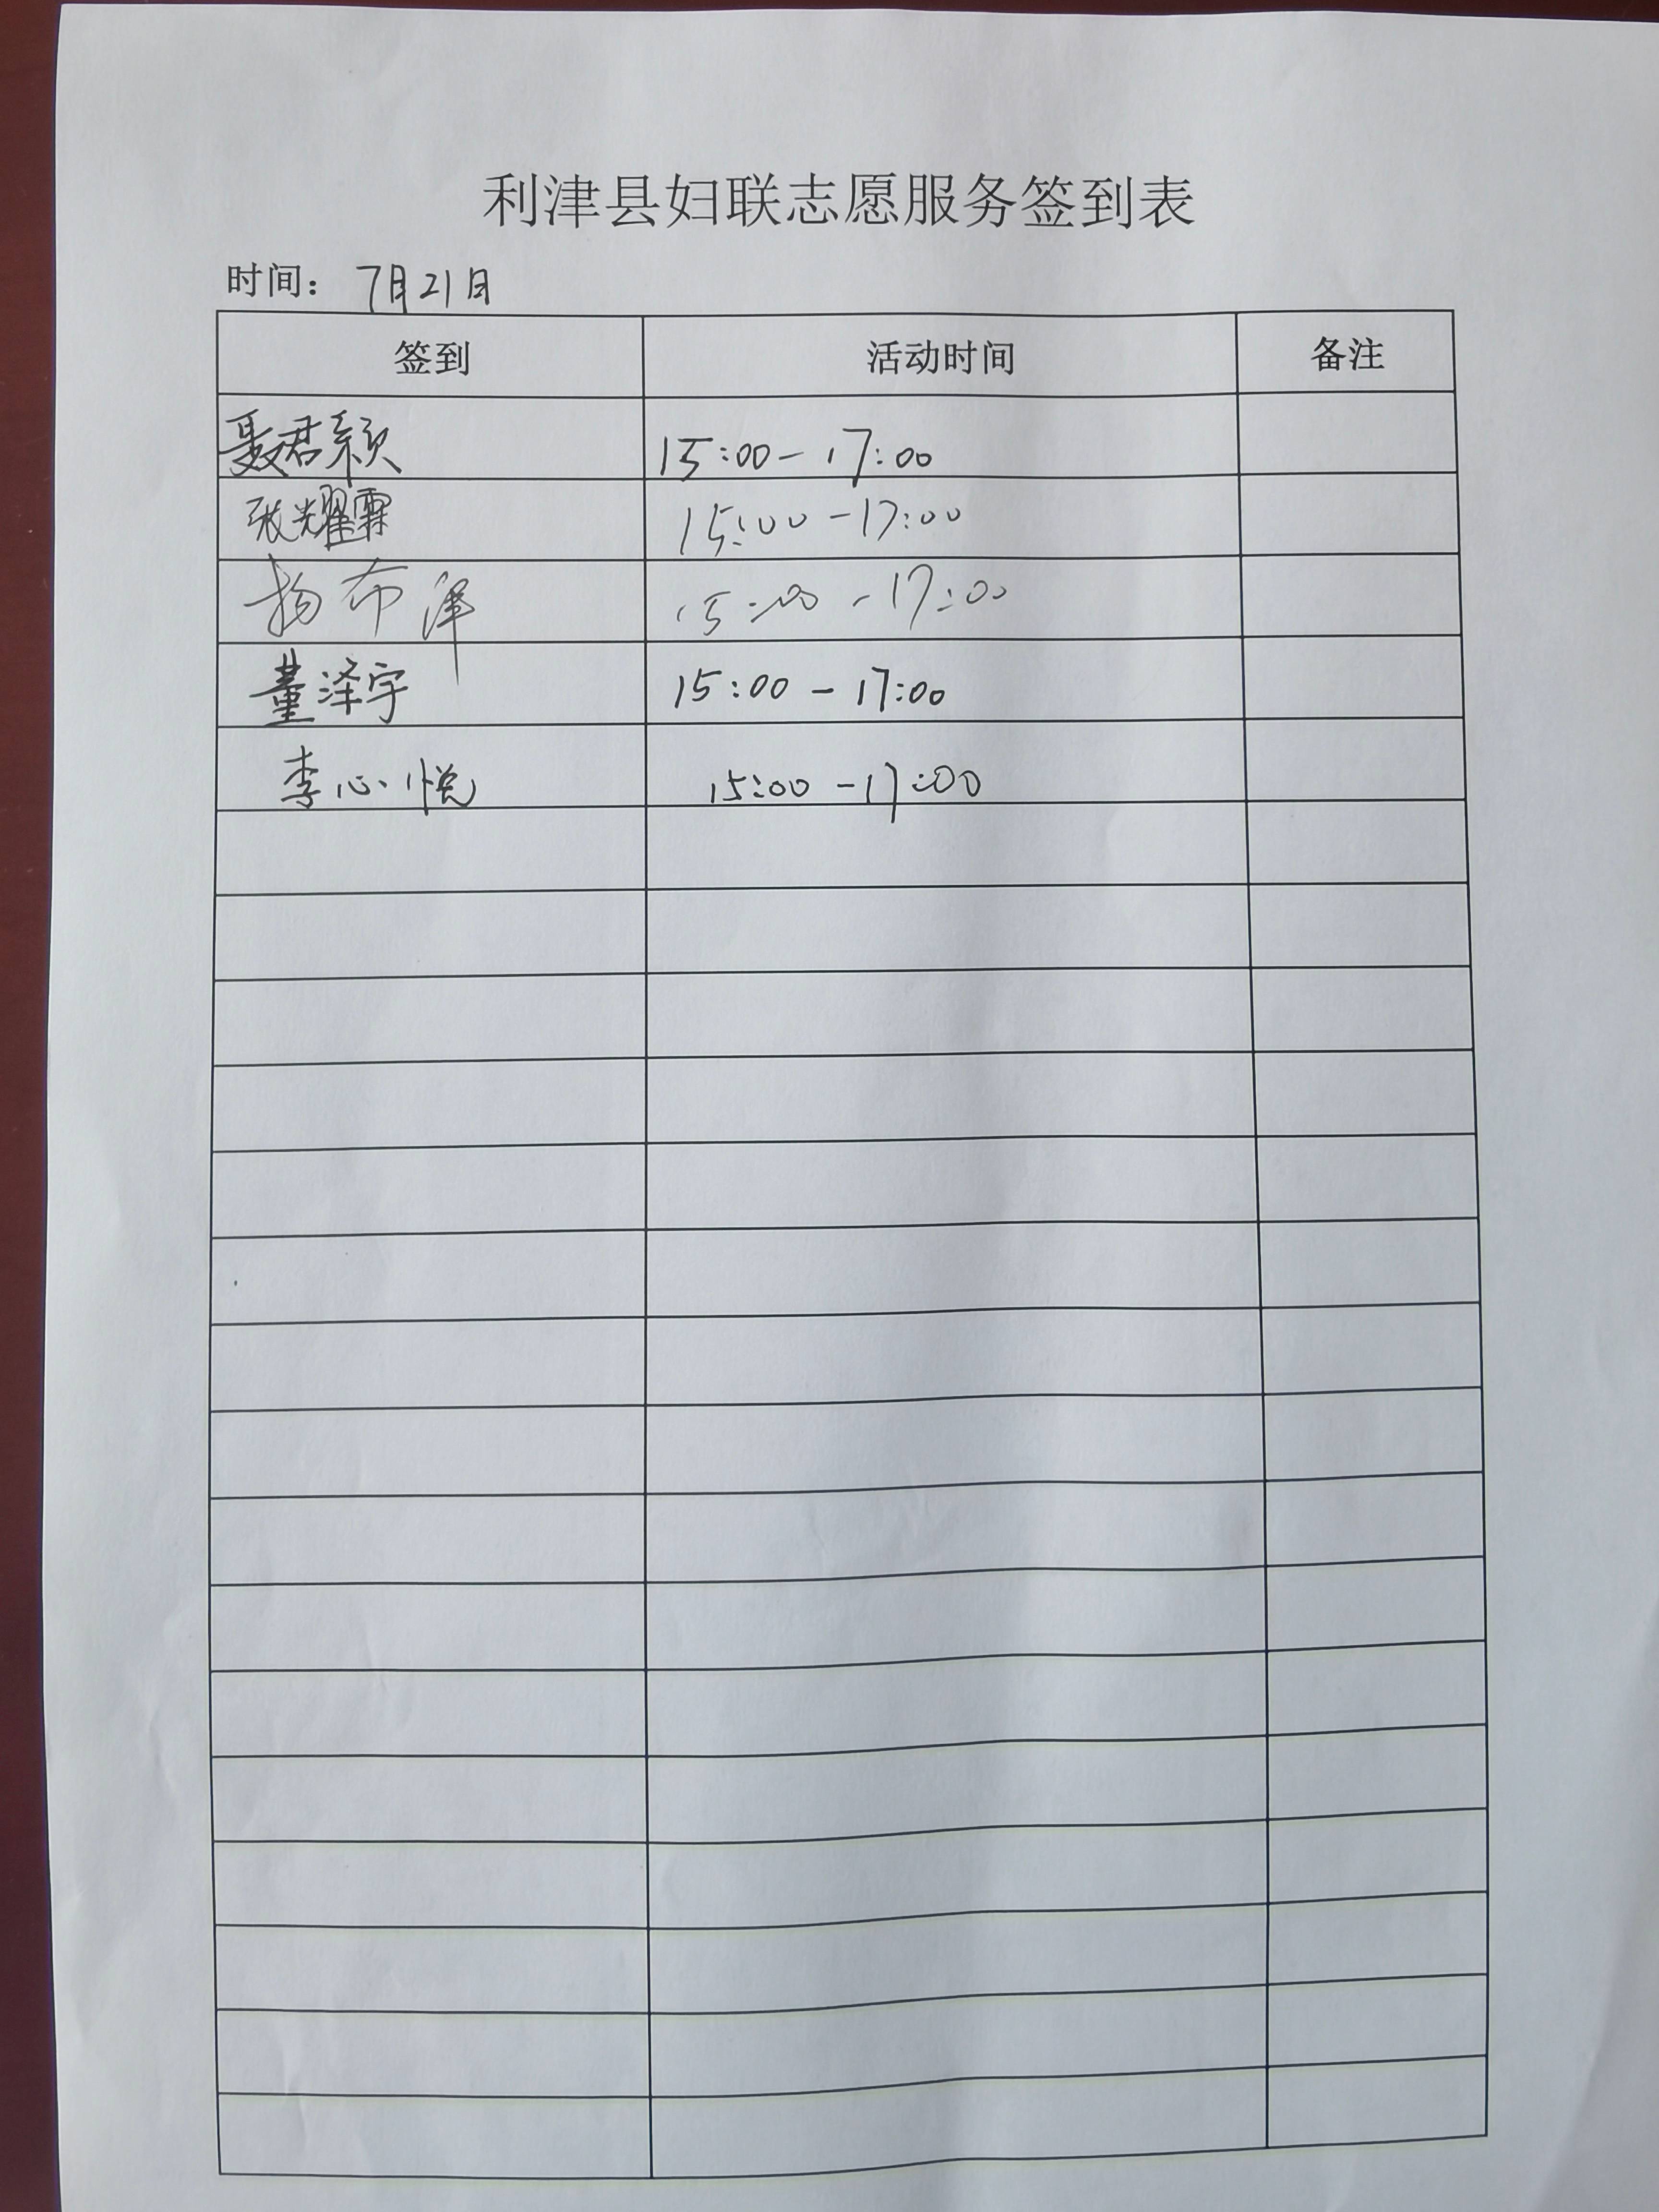 利津县妇联志愿服务签到表
时间：7月21日
签到 活动时间 备注
聂君颖 15:00-17:00
张耀霖 15:00-17:00
杨布泽 15:00-17:00
董泽宇 15:00-17:00
李心悦 15:00-17:00